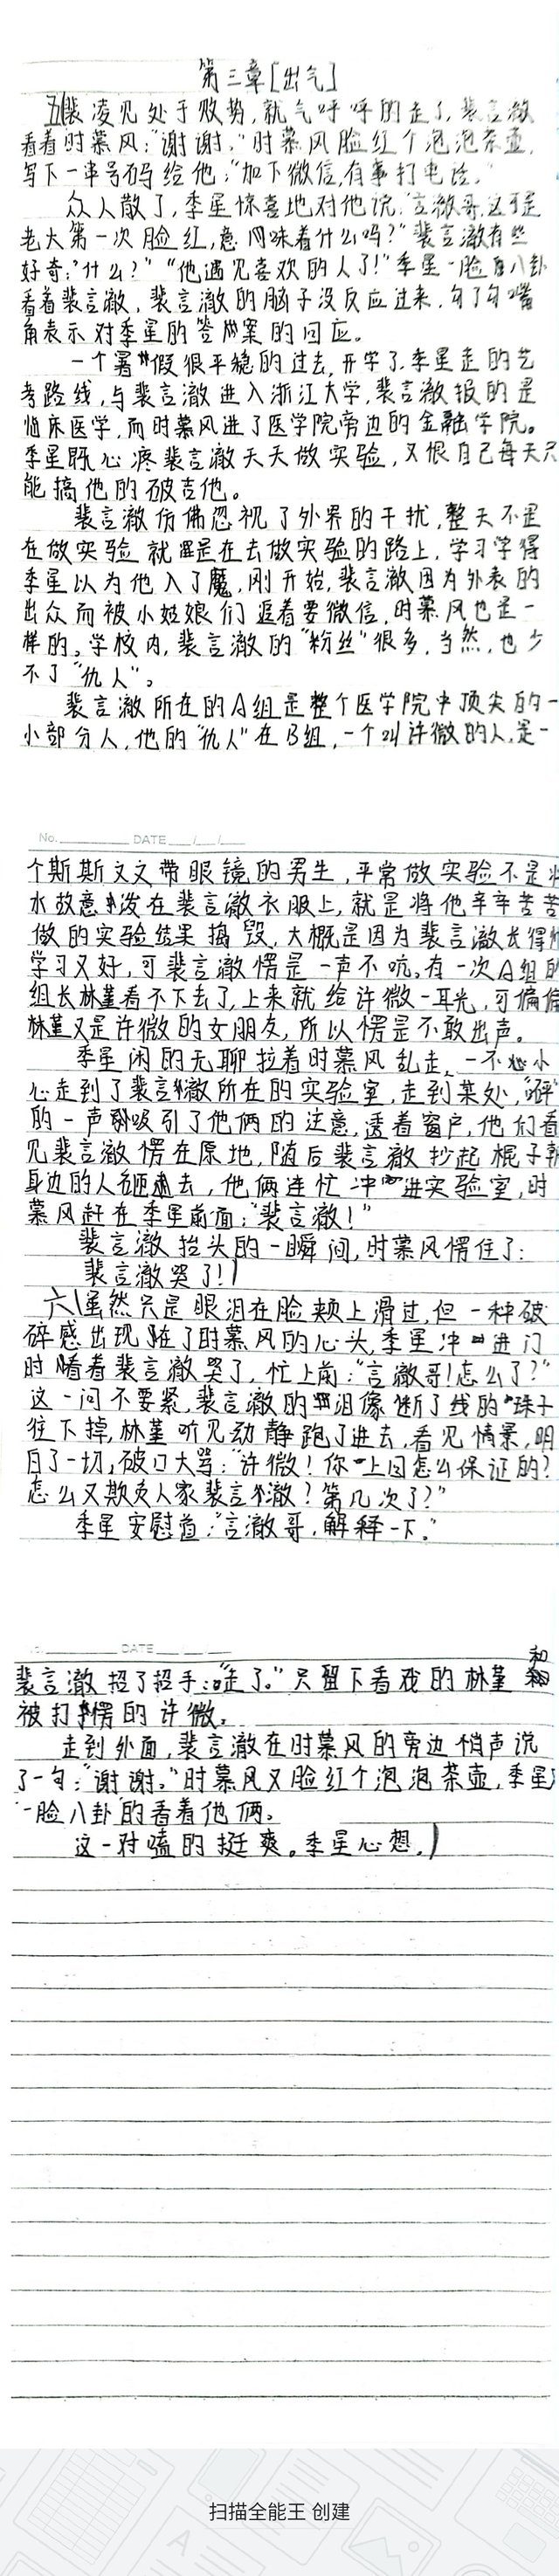 第三章[出气]
五|裴凌见处于败势,就气呼呼的走了,裴言澈
看着时慕风:“谢谢。”时慕风脸红个泡泡茶壶,
写下一串号码给他:“加下微信,有事打电话。”
众人散了,季星惊喜地对他说:“言澈哥,这可是
老大第一次脸红,意网味着什么吗?”裴言澈有些
好奇:“什么?”“他遇见喜欢的人了!”季星一脸八卦
看着裴言澈,裴言澈的脑子没反应过来,勾了勾嘴
角表示对季星的答案的回应。
一个暑假很平稳的过去,开学了,季星走的艺
考路线,与裴言澈进入浙江大学,裴言澈报的是
临床医学,而时慕风进了医学院旁边的金融学院。
季星既心疼裴言澈天天做实验,又恨自己每天只
能搞他的破吉他。
裴言澈仿佛忽视了外界的干扰,整天不是
在做实验就是在去做实验的路上,学习学得
季星以为他入了魔,刚开始,裴言澈因为外表的
出众而被小姑娘们追着要微信,时慕风也是一
样的。学校内,裴言澈的“粉丝”很多,当然,也少
不了“仇人”。
裴言澈所在的A组是整个医学院中顶尖的一
小部分人,他的“仇人”在B组,一个叫许微的人,是一
No. DATE / /
个斯斯文文带眼镜的男生,平常做实验不是将
水故意泼在裴言澈衣服上,就是将他辛辛苦苦
做的实验结果捣毁,大概是因为裴言澈长得帅
学习又好,可裴言澈愣是一声不吭。有一次A组的
组长林堇看不下去了,上来就给许微一耳光,可偏偏
林堇又是许微的女朋友,所以愣是不敢出声。
季星闲的无聊拉着时慕风乱走,一不小
心走到了裴言澈所在的实验室,走到某处,“砰”
的一声吸引了他俩的注意,透着窗户,他们看
见裴言澈愣在原地,随后裴言澈抄起棍子朝
身边的人砸去,他俩连忙冲进实验室,时
慕风赶在季星前面:“裴言澈!”
裴言澈抬头的一瞬间,时慕风愣住了:
裴言澈哭了!|
六|虽然只是眼泪在脸颊上滑过,但一种破
碎感出现在了时慕风的心头,季星冲进门
时看着裴言澈哭了,忙上前:“言澈哥!怎么了?”
这一问不要紧,裴言澈的泪像断了线的珠子
往下掉,林堇听见动静跑了进去,看见情景,明
白了一切,破口大骂:“许微!你上回怎么保证的?
怎么又欺负人家裴言澈?第几次了?”
季星安慰道:“言澈哥,解释一下。”
DATE
裴言澈招了招手:“走了。”只留下看戏的林堇和
被打愣的许微。
走到外面,裴言澈在时慕风的旁边悄声说
了一句:“谢谢。”时慕风又脸红个泡泡茶壶,季星
一脸八卦的看着他俩。
这一对嗑的挺爽。季星心想。|
扫描全能王 创建